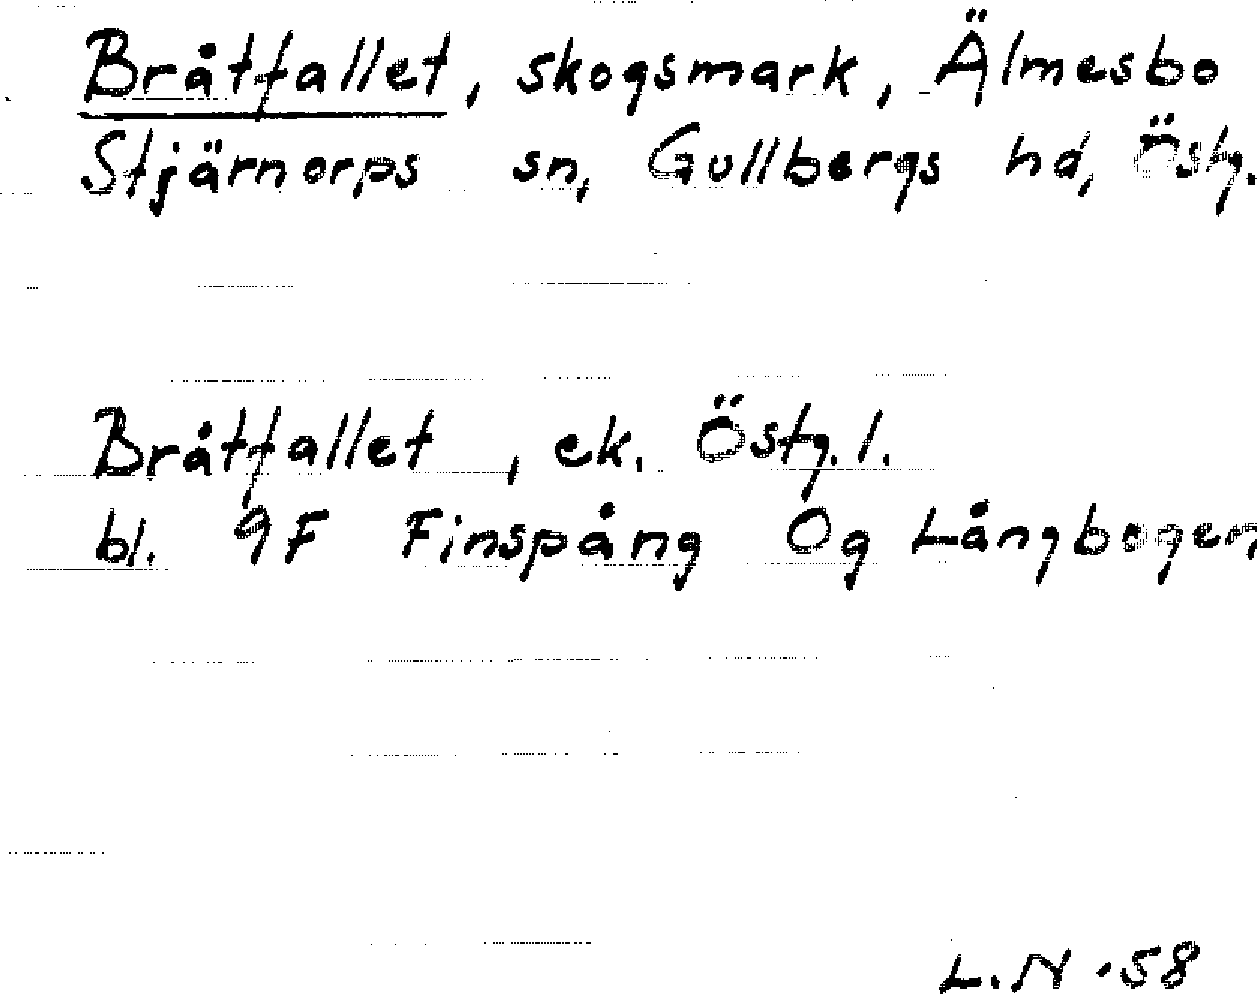 Bråtfallet, skogsmark, Älmesbo
Stjärnorps sn, Gullbergs hd, Östg.
Bråtfallet, ek. Östg. l.
bl. 9F Finspång 0g Långbogen
L. N -58